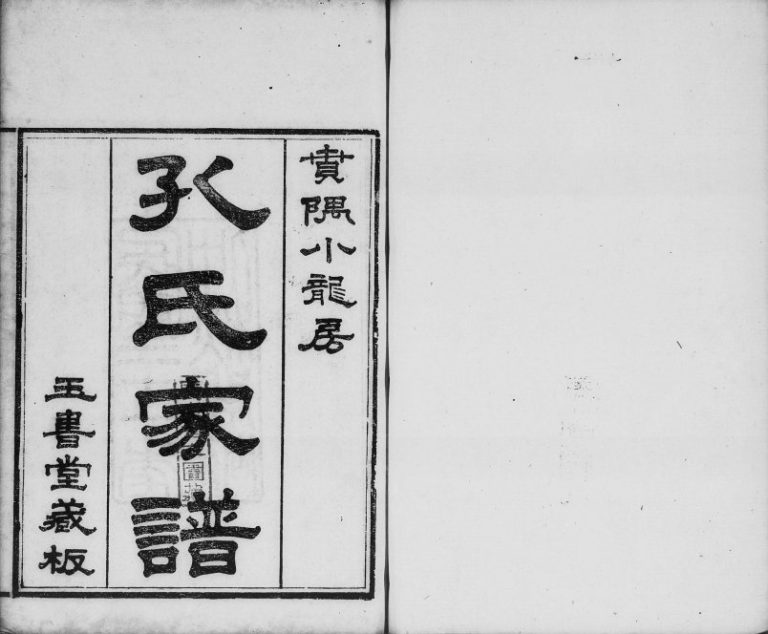 賁隅小龍居
孔氏家譜
玉書堂藏板